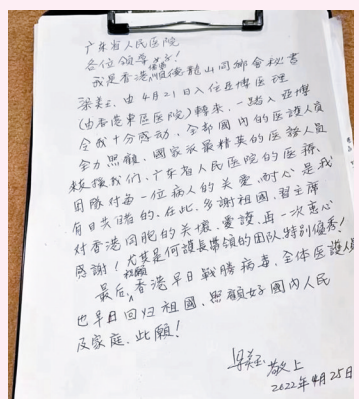 广东省人民医院
各位领导你们好！
我是香港順德龍山同鄉會秘書
梁美玉，由4月21日入住亚博医理
(由香港東區医院)轉来，一踏入亚博
令我十分感动，全部國内的医護人員
全力照顧，國家派最精英的医護人員
救援我们，广东省人民医院的医務
团隊对每一位病人的关爱、耐心是我
有目共睹的。在此，多謝祖國，習主席
对香港同胞的关懷、愛護，再一次衷心
感謝！尤其是何護長帶領的团队特别優秀！
最后，我願香港早日戰勝病毒，全体医護人員
也早日回归祖國，照顧好國内人民
及家庭，此願！
敬上
2022年4月25日